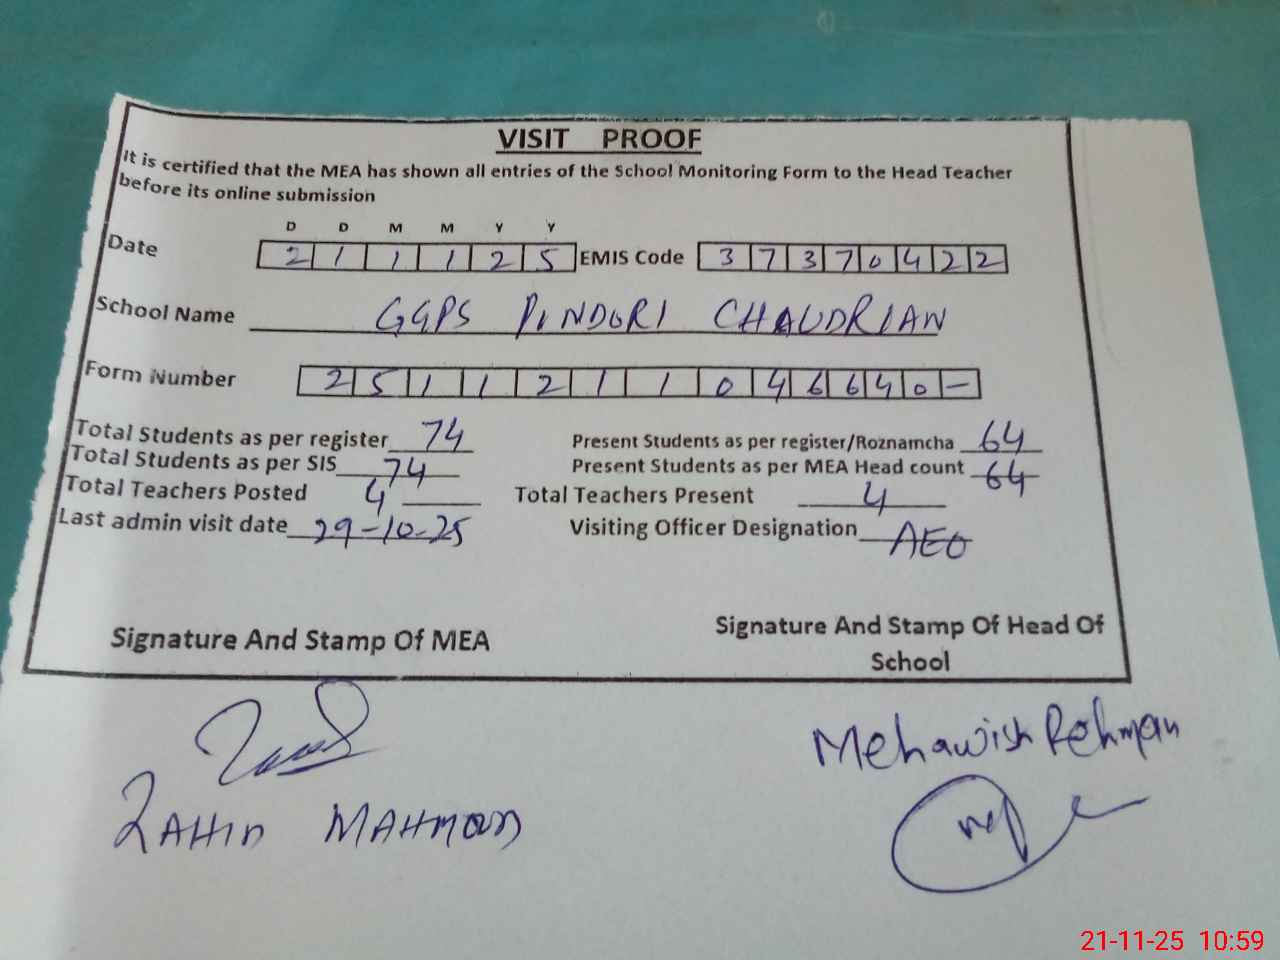 VISIT PROOF
It is certified that the MEA has shown all entries of the School Monitoring Form to the Head Teacher
before its online submission
D D M M Y Y
Date 2 1 1 1 2 5 EMIS Code 3 7 3 7 0 4 2 2
School Name GGPS PINDORI CHAUDRIAN
Form Number 2 5 1 1 2 1 1 0 4 6 6 4 0 -
Total Students as per register 74 Present Students as per register/Roznamcha 64
Total Students as per SIS 74 Present Students as per MEA Head count 64
Total Teachers Posted 4 Total Teachers Present 4
Last admin visit date 29-10-25 Visiting Officer Designation AEO
Signature And Stamp Of MEA Signature And Stamp Of Head Of
School
Mehawish Rehman
MAHMOOD
21-11-25 10:59